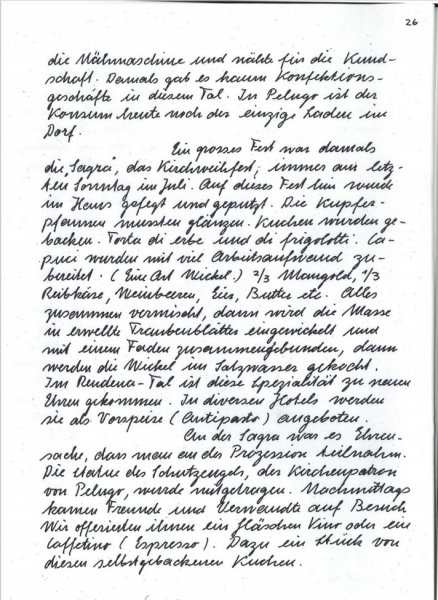 26
die Nähmaschine und nähte für die Kund-
schaft. Damals gab es kaum Konfektions-
geschäfte in diesem Tal. In Pelugo ist der
Konsum heute noch der einzige Laden im
Dorf.
Ein grosses Fest war damals
die „Sagra", das Kirchweihfest, immer am letz-
ten Sonntag im Juli. Auf dieses Fest hin wurde
im Haus gefegt und geputzt. Die Kupfer-
pfannen mussten glänzen. Kuchen wurden ge-
backen. Torta di erbe und di frigolotti. Ca-
puci wurden mit viel Arbeitsaufwand zu-
bereitet. (Eine Art Wickel.) 2/3 Mangold, 1/3
Reibkäse, Weinbeeren, Eier, Butter etc. Alles
zusammen vermischt, dann wird die Masse
in erwellte Traubenblätter eingewickelt und
mit einem Faden zusammengebunden, dann
werden die Wickel im Salzwasser gekocht.
Im Rendena-Tal ist diese Spezialität zu neuen
Ehren gekommen. In diversen Hotels werden
sie als Vorspeise (Antipasto) angeboten.
An der Sagra war es Ehren-
sache, dass man an der Prozession teilnahm.
Die Statue des Schutzengels, der Kirchenpatron
von Pelugo, wurde mitgetragen. Nachmittags
kamen Freunde und Verwandte auf Besuch
Wir offerierten ihnen ein Gläschen Vino oder ein
Caffetino (Espresso). Dazu ein Stück von
diesen selbstgebackenen Kuchen.